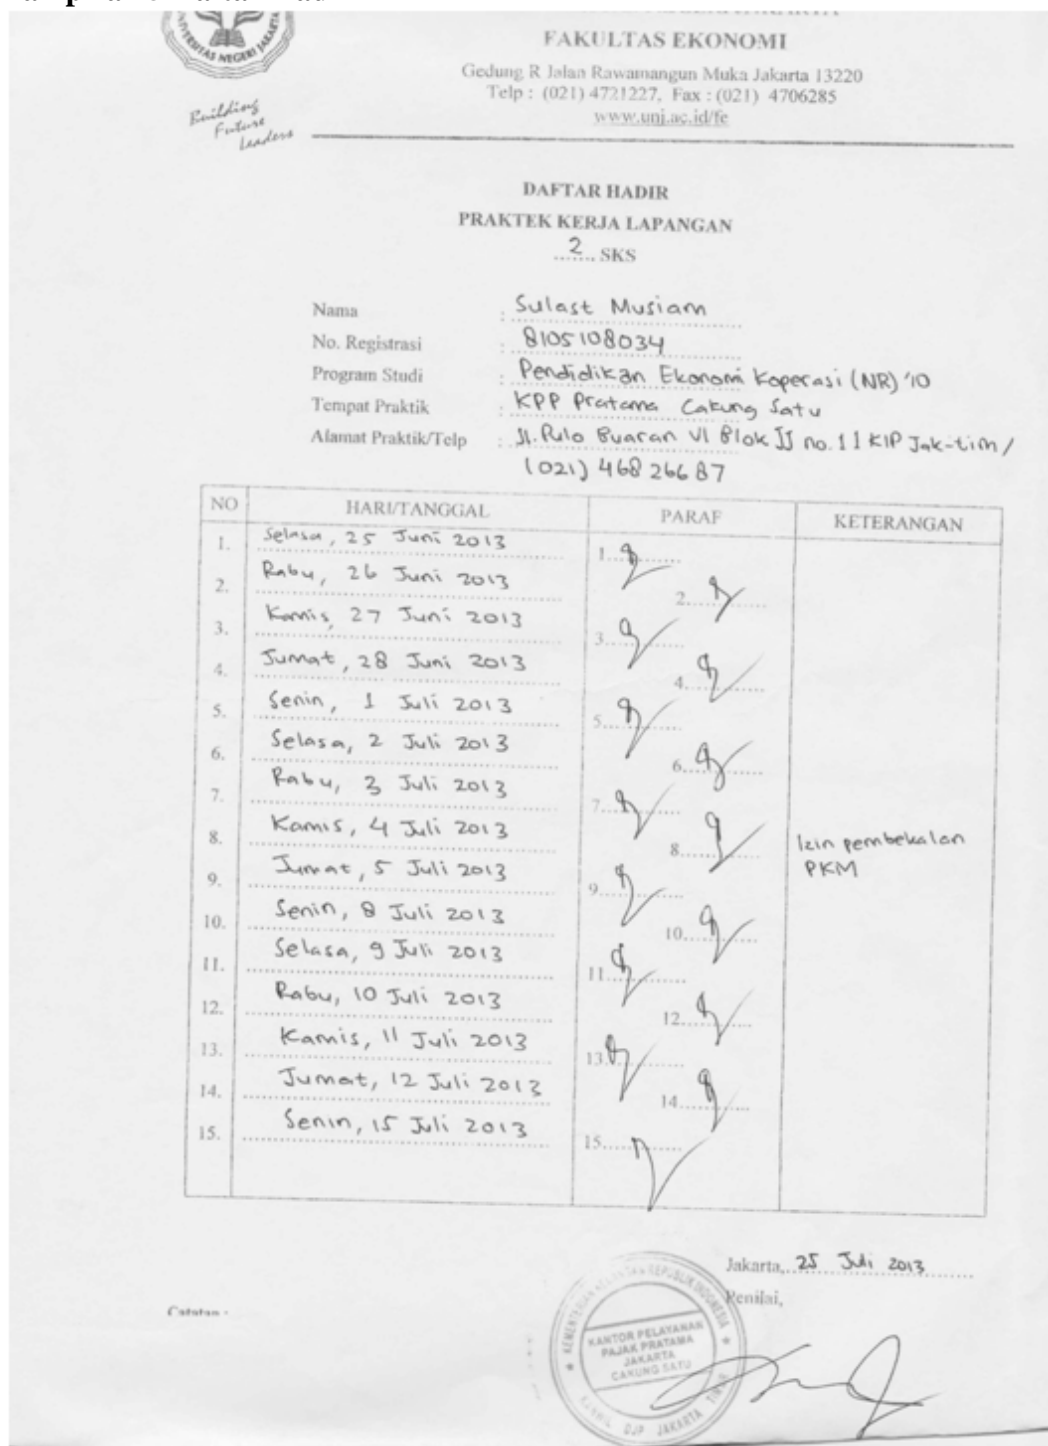 UNIVERSITAS NEGERI JAKARTA
Building
Future
Leaders
FAKULTAS EKONOMI
Gedung R Jalan Rawamangun Muka Jakarta 13220
Telp : (021) 4721227, Fax : (021) 4706285
www.unj.ac.id/fe
DAFTAR HADIR
PRAKTEK KERJA LAPANGAN
2 SKS
Nama : Sulast Musiam
No. Registrasi : 8105108034
Program Studi : Pendidikan Ekonomi Koperasi (NR) '10
Tempat Praktik : KPP Pratama Cakung Satu
Alamat Praktik/Telp : Jl. Pulo Buaran VI Blok JJ no. 11 KIP Jak-tim /
(021) 468 266 87
NO HARI/TANGGAL PARAF KETERANGAN
1. Selasa, 25 Juni 2013 1.
2. Rabu, 26 Juni 2013 2.
3. Kamis, 27 Juni 2013 3.
4. Jumat, 28 Juni 2013 4.
5. Senin, 1 Juli 2013 5.
6. Selasa, 2 Juli 2013 6.
7. Rabu, 3 Juli 2013 7.
8. Kamis, 4 Juli 2013 8. Izin pembekalan
PKM
9. Jumat, 5 Juli 2013 9.
10. Senin, 8 Juli 2013 10.
11. Selasa, 9 Juli 2013 11.
12. Rabu, 10 Juli 2013 12.
13. Kamis, 11 Juli 2013 13.
14. Jumat, 12 Juli 2013 14.
15. Senin, 15 Juli 2013 15.
Jakarta, 25 Juli 2013
Penilai,
Catatan :
KEMENTERIAN KEUANGAN REPUBLIK INDONESIA
KANTOR PELAYANAN
PAJAK PRATAMA
JAKARTA
CAKUNG SATU
KANWIL DJP JAKARTA TIMUR